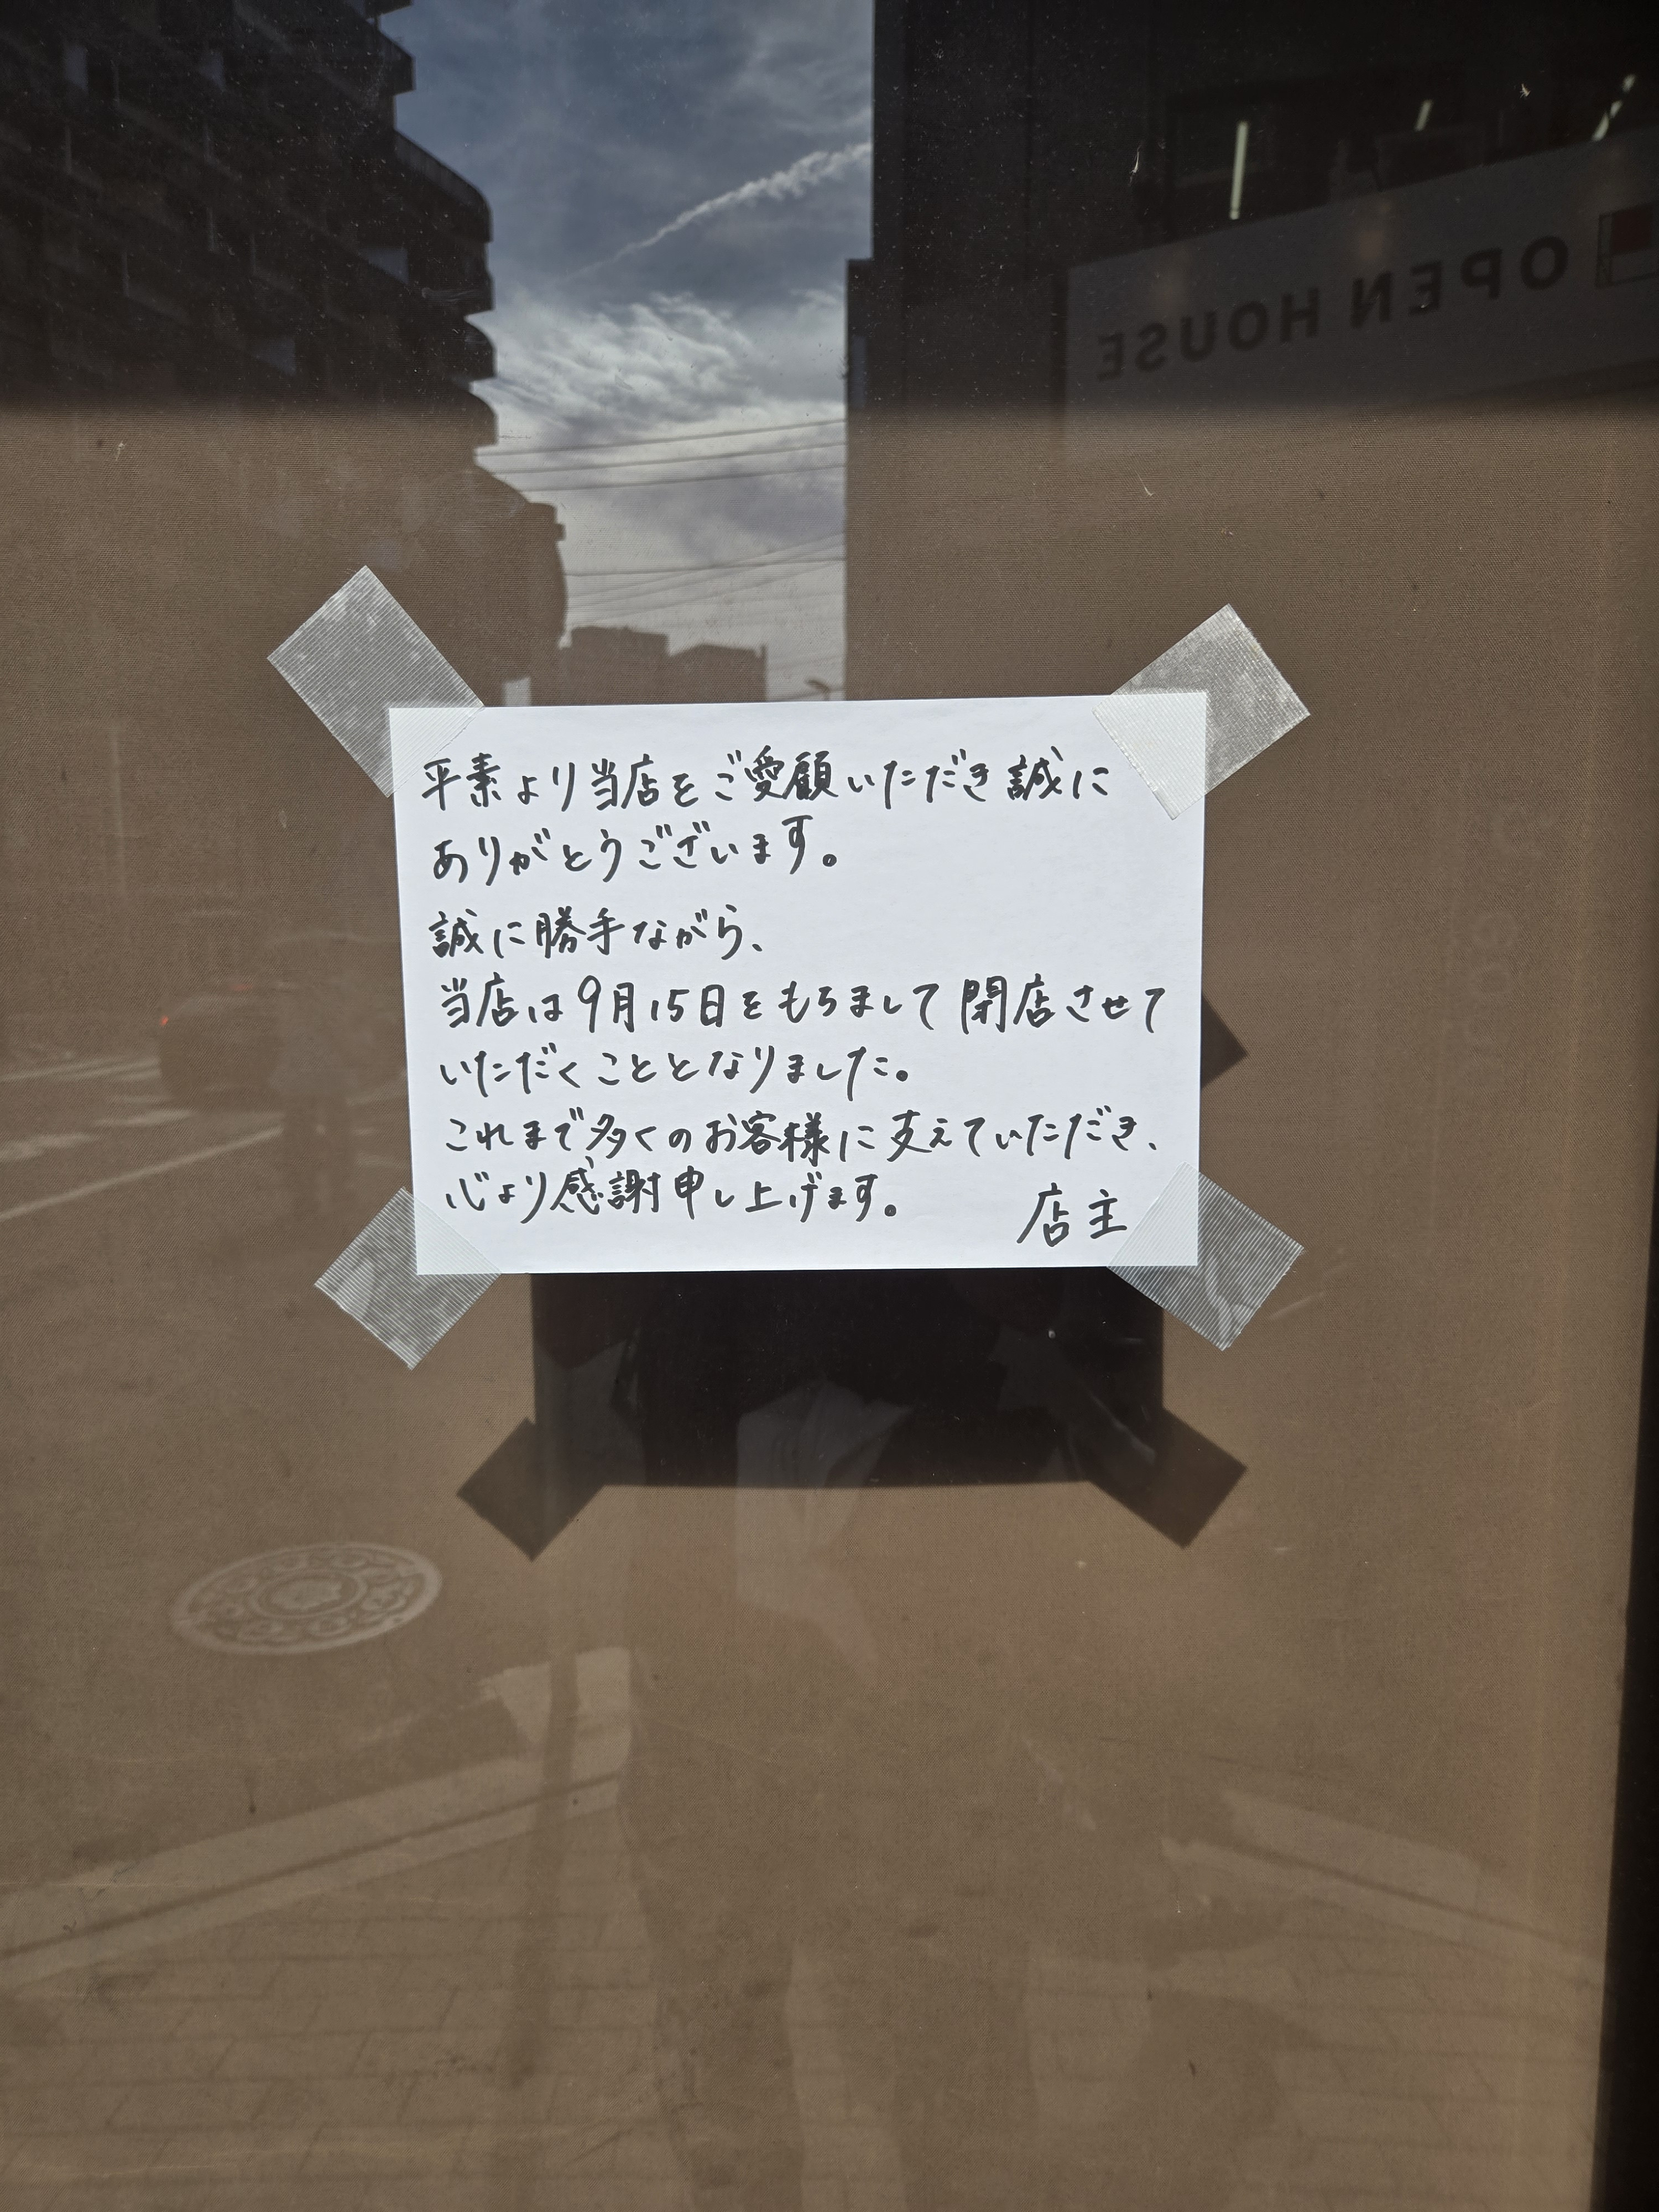 OPEN HOUSE
平素より当店をご愛顧いただき誠に
ありがとうございます。
誠に勝手ながら、
当店は9月15日をもちまして閉店させて
いただくこととなりました。
これまで多くのお客様に支えていただき、
心より感謝申し上げます。
店主